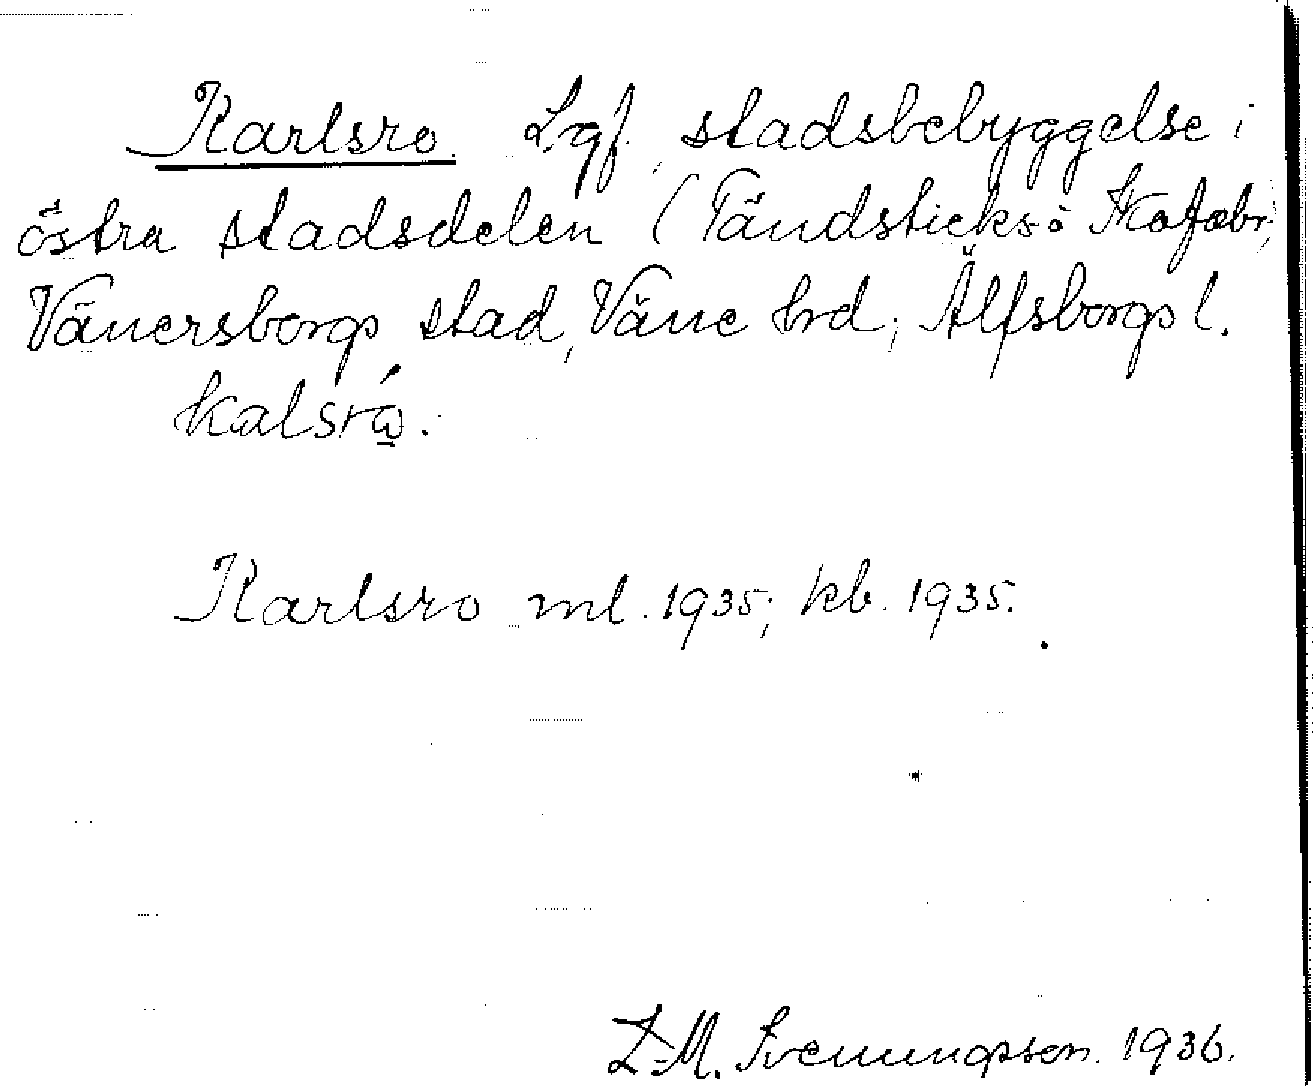 Karlsro. Lgf. stadsbebyggelse i
östra stadsdelen (Tändsticks- o Skofabr.,
Vänersborgs stad, Väne hrd, Älfsborgs l.
kalsrǻ.
Karlsro ml. 1935; kb. 1935.
L-M. Svenungsson. 1936.